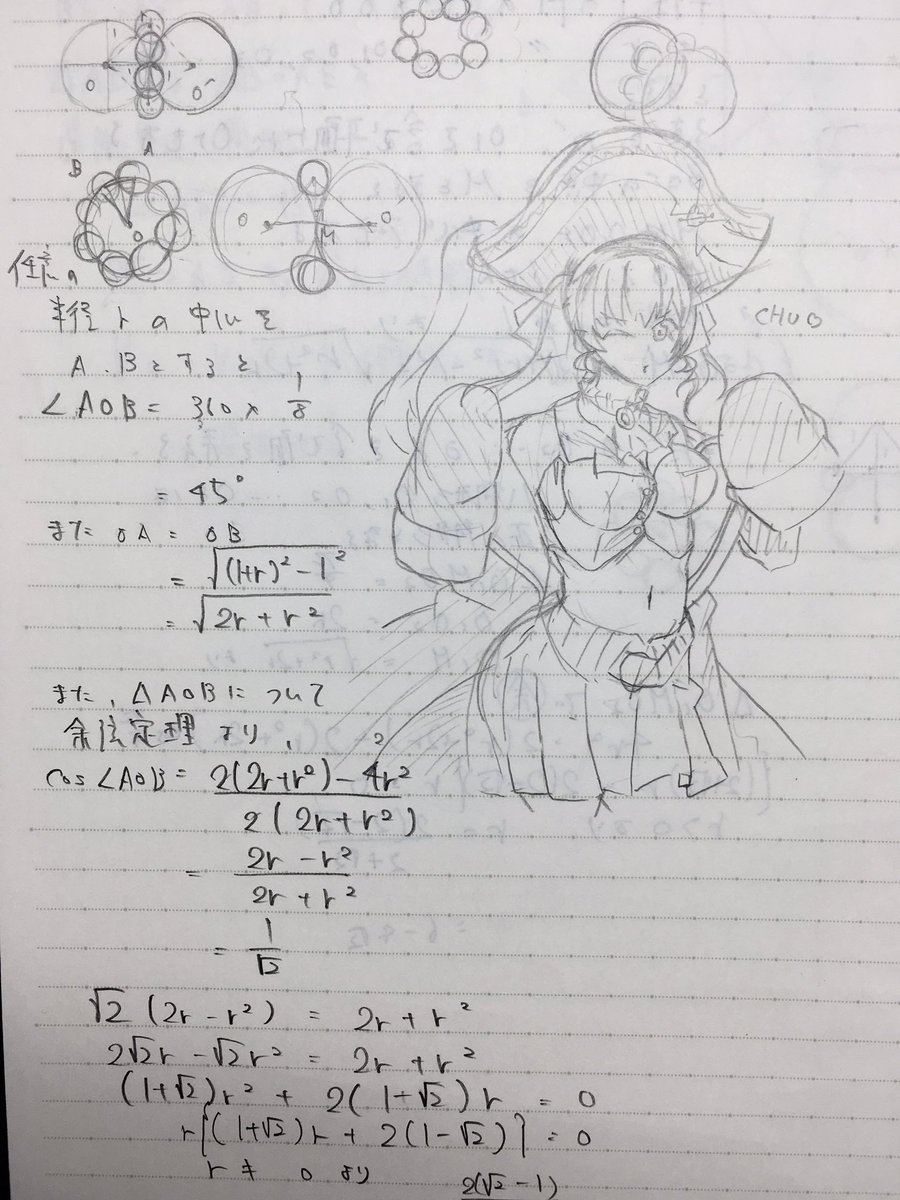 O
O'
A
B
O
O
O'
M
任意の
半径rの中心を
A.Bとすると,
∠AOB = 360 × 1/8
= 45°
また OA = OB
= √(1+r)² - 1²
= √2r + r²
また, △AOBについて
余弦定理より,
cos∠AOB = 2(2r+r²) - 4r² / 2(2r+r²)
= 2r - r² / 2r + r²
= 1/√2
√2(2r - r²) = 2r + r²
2√2r - √2r² = 2r + r²
(1+√2)r² + 2(1+√2)r = 0
r{(1+√2)r + 2(1-√2)} = 0
r ≠ 0 より
2(√2 - 1)
CHUO